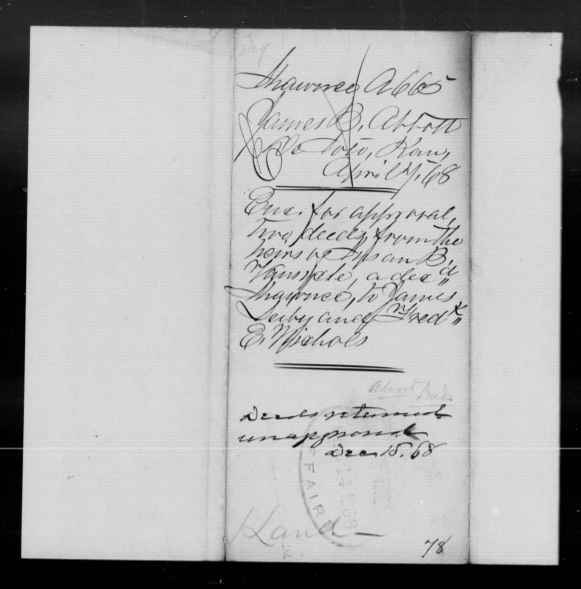 Shawnee A665
James B. Abbott
De Soto, Kan,
April 7, 68
Enc. for approval,
two deeds, from the
heirs of Susan B.
a dec'd
Shawnee, to James
and Fred'k
E. Nichols
Deeds returned
unapproved
Dec 15. 68
Land
78